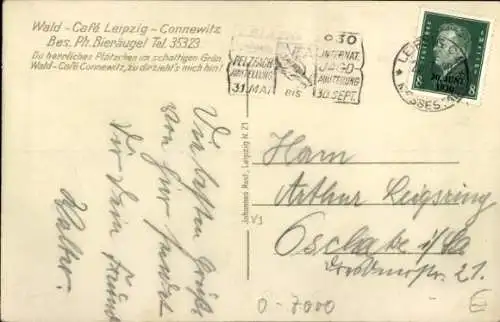 Wald-Café Leipzig-Connewitz
Bes. Ph. Bieräugel Tel. 35323
Du herrliches Plätzchen im schattigen Grün,
Wald-Café Connewitz, zu dir zieht's mich hin!
PELZFACH
AUSSTELLUNG
31. MAI
BIS
INTERNAT.
JAGD
AUSSTELLUNG
30. SEPT.
30. JUNI
1930
8
8
Johannes Rust, Leipzig N 21
Die besten Grüße
von hier sendet
Dir Dein Freund
Walter.
Herrn
Arthur
Oschatz i/Sa
21.
0-7000